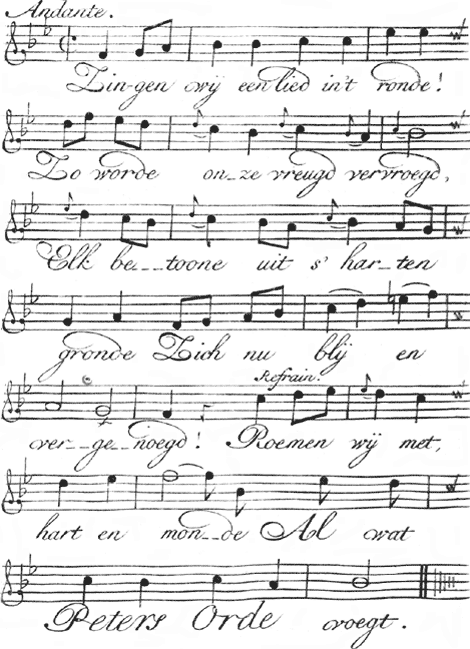 Andante.
Zin-gen wij een lied in't ronde!
Zo worde on-ze vreugd vervroegd,
Elk be--toone uit s' har-ten
gronde Zich nu blij en
Refrain.
ver--ge--noegd! Roemen wij met,
hart en mon--de Al wat
Peters Orde voegt.